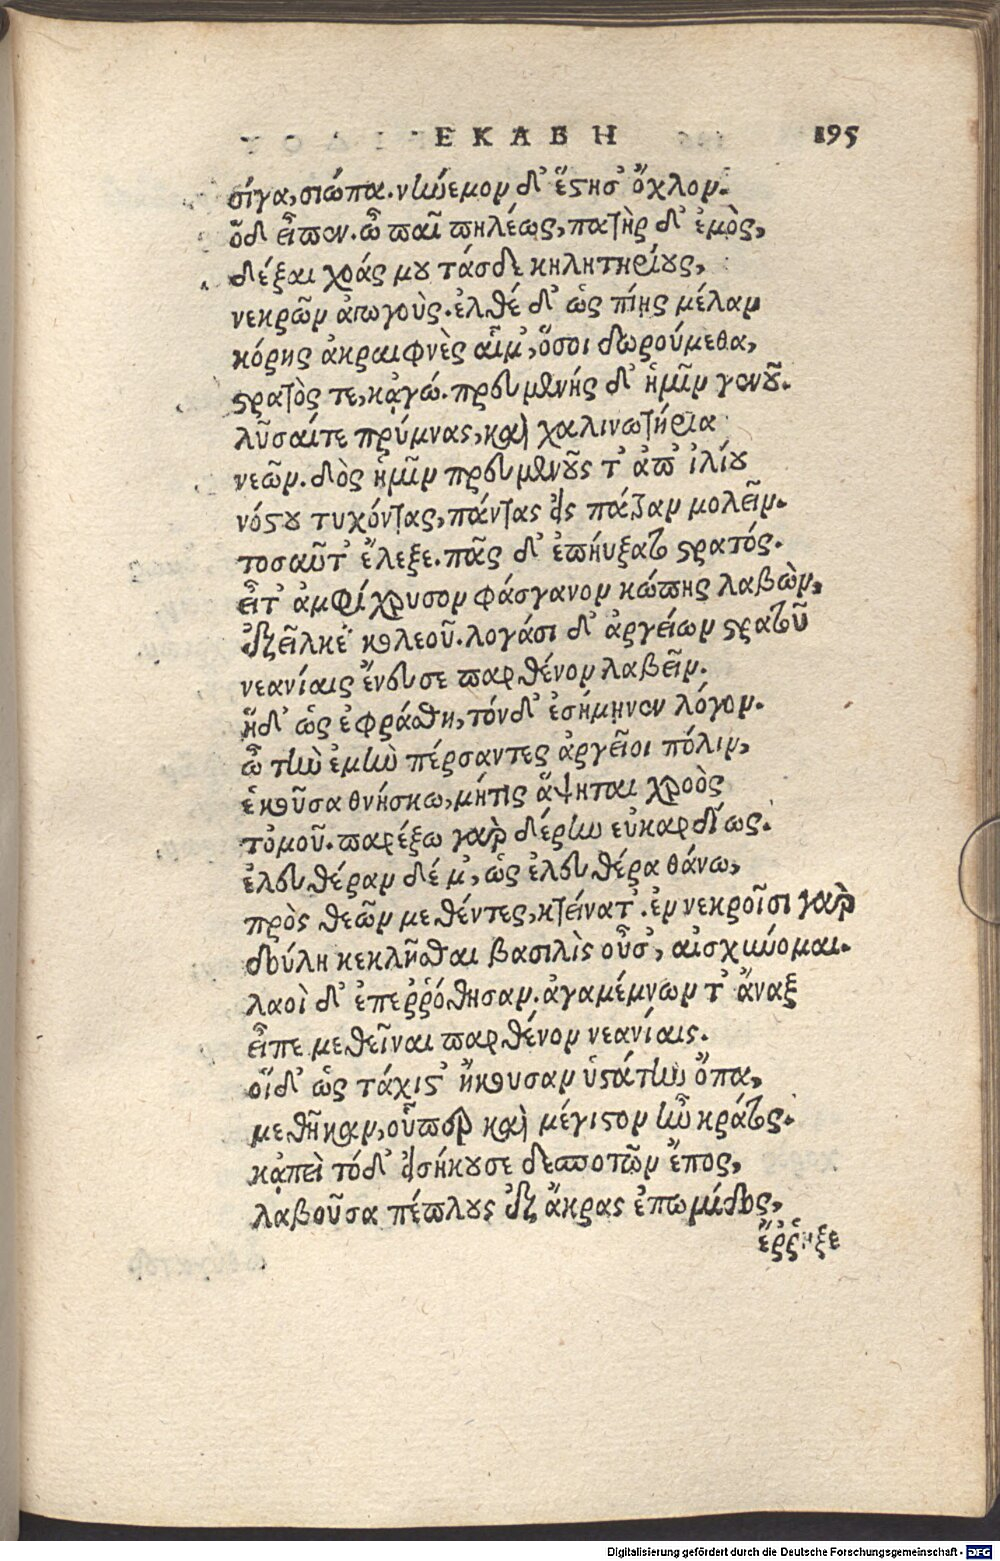 ΕΚΑΒΗ 195
σίγα, σιώπα. νήνεμον δ' ἔστησ' ὄχλον.
ὅδ' εἶπεν. ὦ παῖ πηλέως, πατὴρ δ' ἐμὸς,
δέξαι χοάς μου τάσδε κηλητηρίους,
νεκρῶν ἀγωγούς. ἐλθέ δ' ὡς πίῃς μέλαν
κόρης ἀκραιφνὲς αἷμ', ὅσοι δωρούμεθα,
στρατὸς τε, κᾀγώ. πρευμενής δ' ἡμῖν γενοῦ.
λῦσαίτε πρύμνας, καὶ χαλινωτήρια
νεῶν. δὸς ἡμῖν πρευμενοῦς τ' ἀπ' ἰλίου
νόστου τυχόντας, πάντας εἰς πάτραν μολεῖν.
τοσαῦτ' ἔλεξε. πᾶς δ' ἐπήυξατο στρατός.
εἶτ' ἀμφίχρυσον φάσγανον κώπης λαβὼν,
ἐξεῖλκε κολεοῦ. λογάσι δ' ἀργείων στρατοῦ
νεανίαις ἔνευσε παρθένον λαβεῖν.
ἣδ' ὡς ἐφράσθη, τόνδ' ἐσήμηνεν λόγον.
ὦ τὴν ἐμὴν πέρσαντες ἀργεῖοι πόλιν,
ἑκοῦσα θνήσκω, μήτις ἅψηται χροὸς
τὀμοῦ. παρέξω γὰρ δέρην εὐκαρδίως.
ἐλευθέραν δέ μ', ὡς ἐλευθέρα θάνω,
πρὸς θεῶν μεθέντες, κτείνατ'. ἐν νεκροῖσι γὰρ
δούλη κεκλῆσθαι βασιλὶς οὖσ', αἰσχύνομαι.
λαοὶ δ' ἐπεῤῥόθησαν. ἀγαμέμνων τ' ἄναξ
εἶπε μεθεῖναι παρθένον νεανίαις.
οἵδ' ὡς τάχιστ' ἤκουσαν ὑστάτην ὄπα,
μεθῆκαν, οὗπερ καὶ μέγιστον ἦν κράτος.
κᾀπεὶ τόδ' εἰσήκουσε δεσποτῶν ἔπος,
λαβοῦσα πέπλους ἐξ ἄκρας ἐπωμίδος,
ἔῤῥηξε
Digitalisierung gefördert durch die Deutsche Forschungsgemeinschaft - DFG